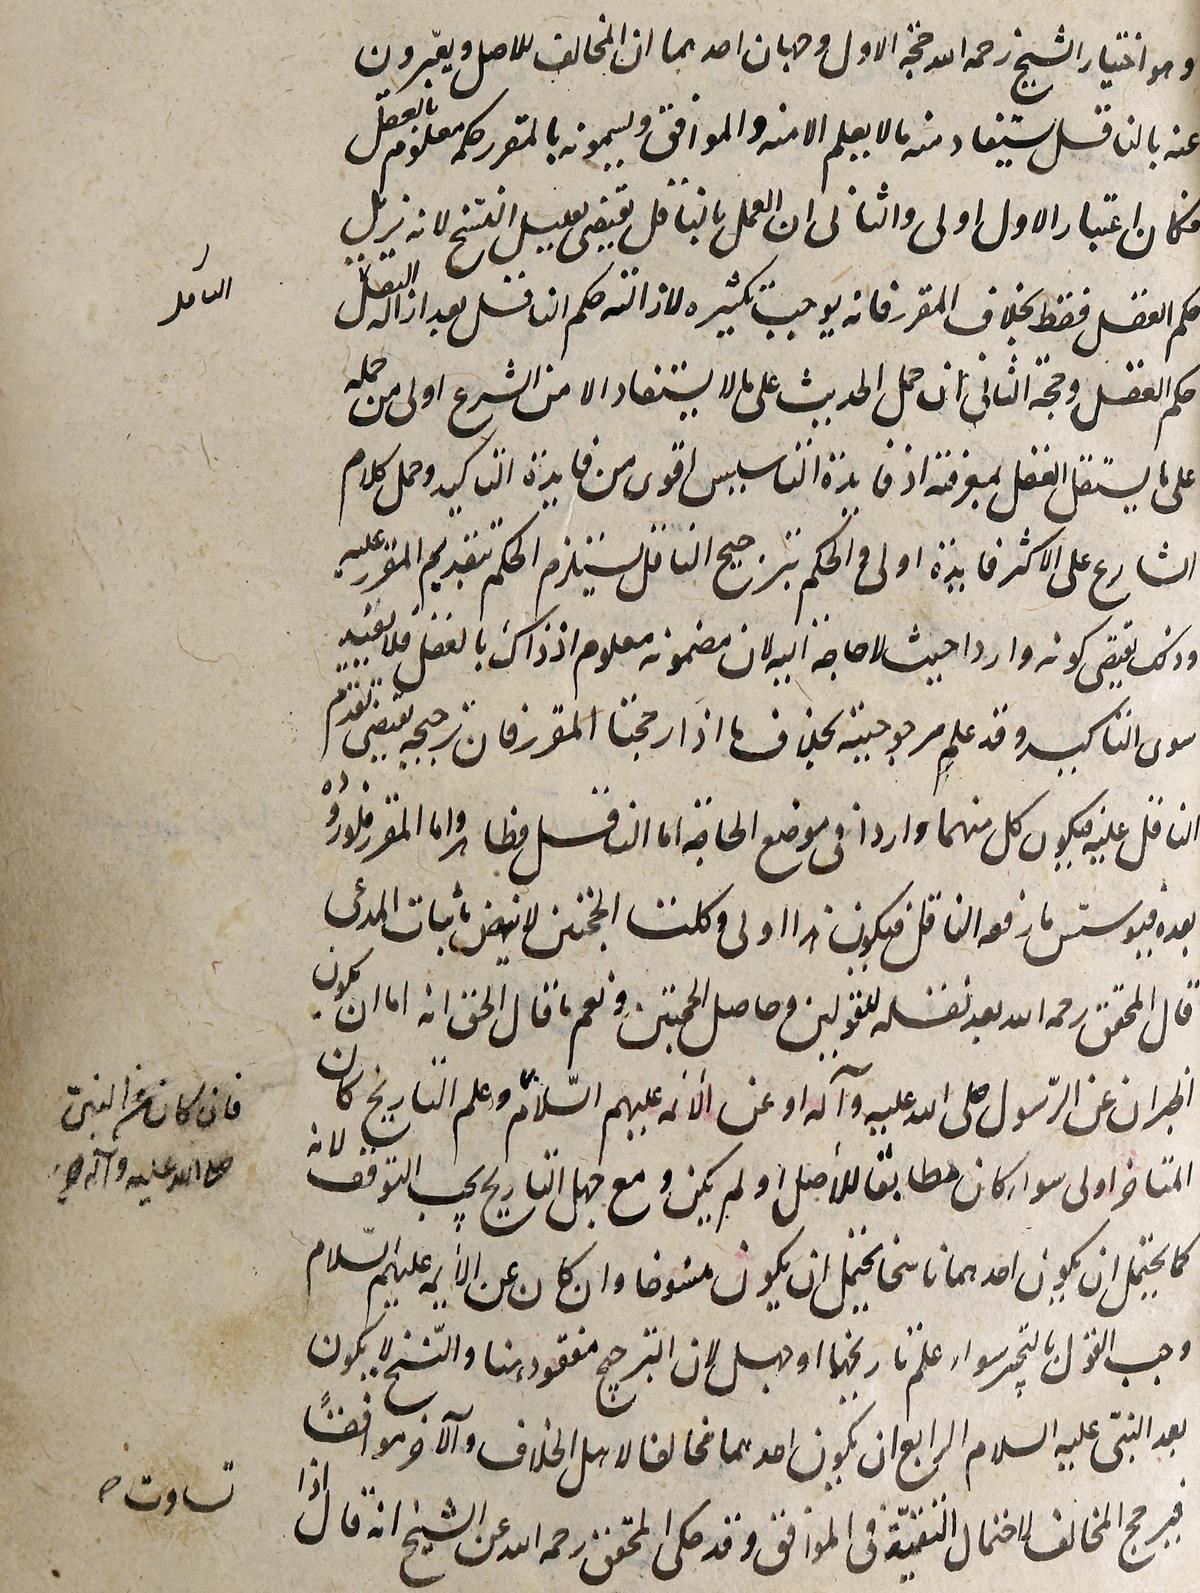 وهو اختيار الشيخ رحمه الله حجة الاول وجهان احدهما ان المخالف للاصل ويعبرون
عنه بالناقل يستفاد منه ما لا يعلم الا منه والموافق ويسمونه بالمقرر حكمه معلوم بالعقل
فكان اعتبار الاول اولى والثاني ان العمل بالناقل يقتضي تقليل النسخ لانه يزيل
حكم العقل فقط بخلاف المقرر فانه يوجب تكثيره لازالته حكم الناقل بعد ازالة الناقل
حكم العقل وحجة الثاني ان حمل الحديث على ما لا يستفاد الا من الشرع اولى من حمله
على ما يستقل العقل بمعرفته اذ فايدة التاسيس اقوى من فايدة التاكيد وحمل كلام
الشارع على الاكثر فايدة اولى والحكم بترجيح الناقل يستلزم الحكم بتقديم المقرر عليه
وذلك يقتضي كونه واردا حيث لا حاجة اليه لان مضمونه معلوم اذ ذاك بالعقل فلا يفيد
سوى التاكيد وقد علم مرجوحيته بخلاف ما اذا رجحنا المقرر فان ترجيحه يقتضي تقدم
الناقل عليه فيكون كل منهما واردا في موضع الحاجة اما الناقل فظاهر واما المقرر فلوروده
بعده فيوسس ما رفعه الناقل فيكون هذا اولى وكلتا الحجتين لا ينهض باثبات المدعى
قال المحقق رحمه الله بعد نقله للقولين وحاصل الحجتين ونعم ما قال الحق انه اما ان يكون
الخبران عن الرسول صلى الله عليه وآله او عن الأئمة عليهم السلام وعلم التاريخ كان
المتاخر اولى سواء كان مطابقا للأصل او لم يكن ومع جهل التاريخ يجب التوقف لانه
كما يحتمل ان يكون احدهما ناسخا يحتمل ان يكون منسوخا وان كان عن الأيمة عليهم السلام
وجب القول بالتخيير سواء علم تاريخهما او جهل لان الترجيح مفقود هنا والنسخ لا يكون
بعد النبي عليه السلام الرابع ان يكون احدهما مخالفا لاهل الخلاف والآخر موافقا
فيرجح المخالف لاحتمال التقية في الموافق وقد حكى المحقق رحمه الله عن الشيخ انه قال اذا
الناقل
فان كان عن النبي
صلى الله عليه وآله
تساوت